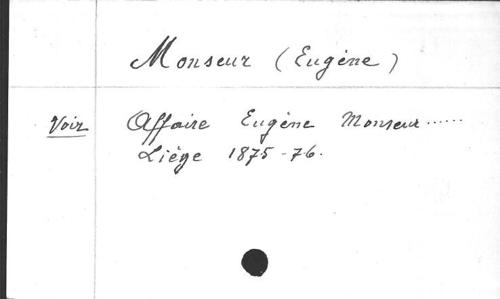 Monseur (Eugène)
Voir Affaire Eugène Monseur......
Liége 1875-76.